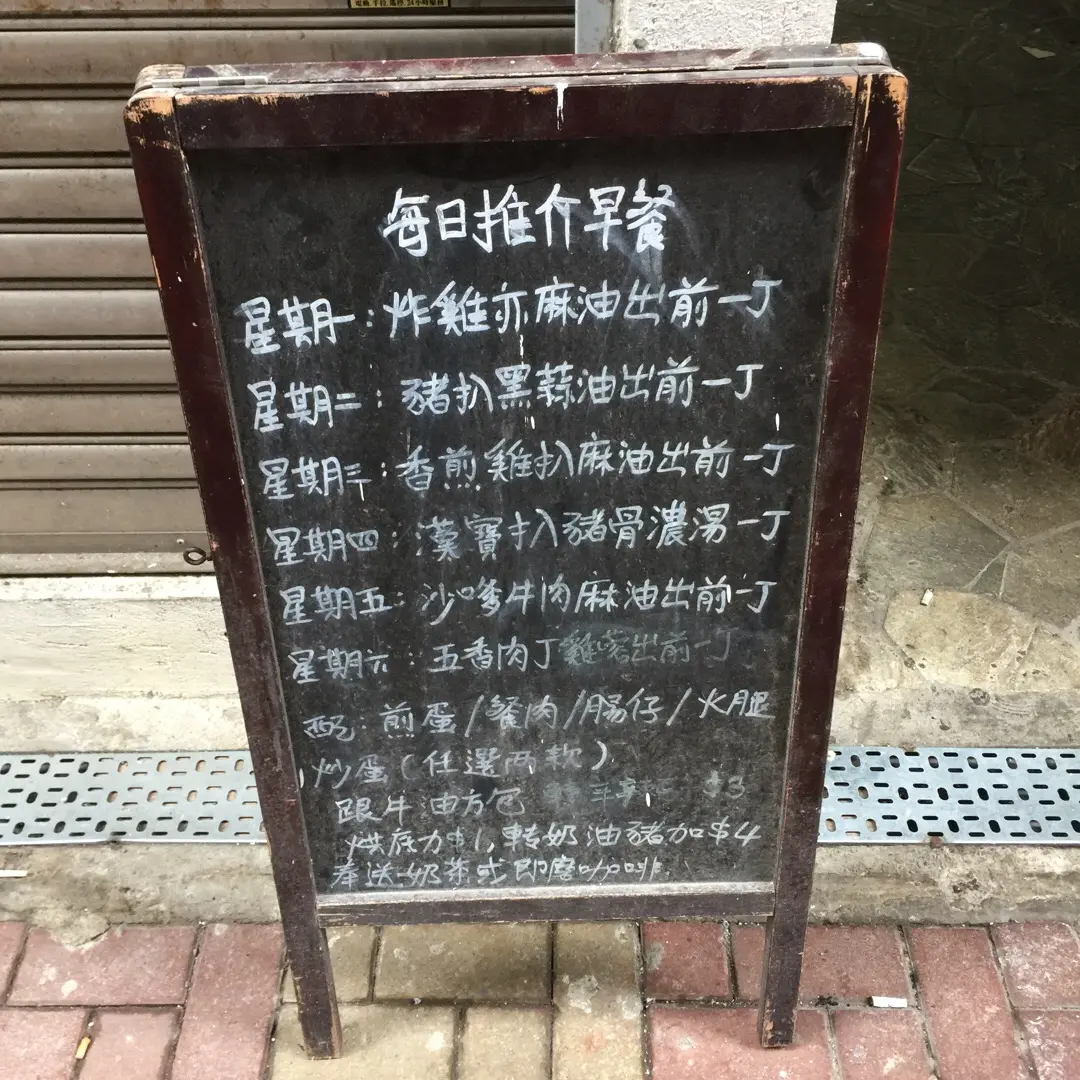 電動,手拉,維修,24小時服務
每日推介早餐
星期一:炸雞亦麻油出前一丁
星期二:豬扒黑蒜油出前一丁
星期三:香煎雞扒麻油出前一丁
星期四:漢寶扒豬骨濃湯一丁
星期五:沙嗲牛肉麻油出前一丁
星期六:五香肉丁雞蓉出前一丁
配:煎蛋/餐肉/腸仔/火腿
炒蛋(任選兩款)
跟牛油方包 $3
烘底加$1,轉奶油豬加$4
奉送奶茶或即磨咖啡